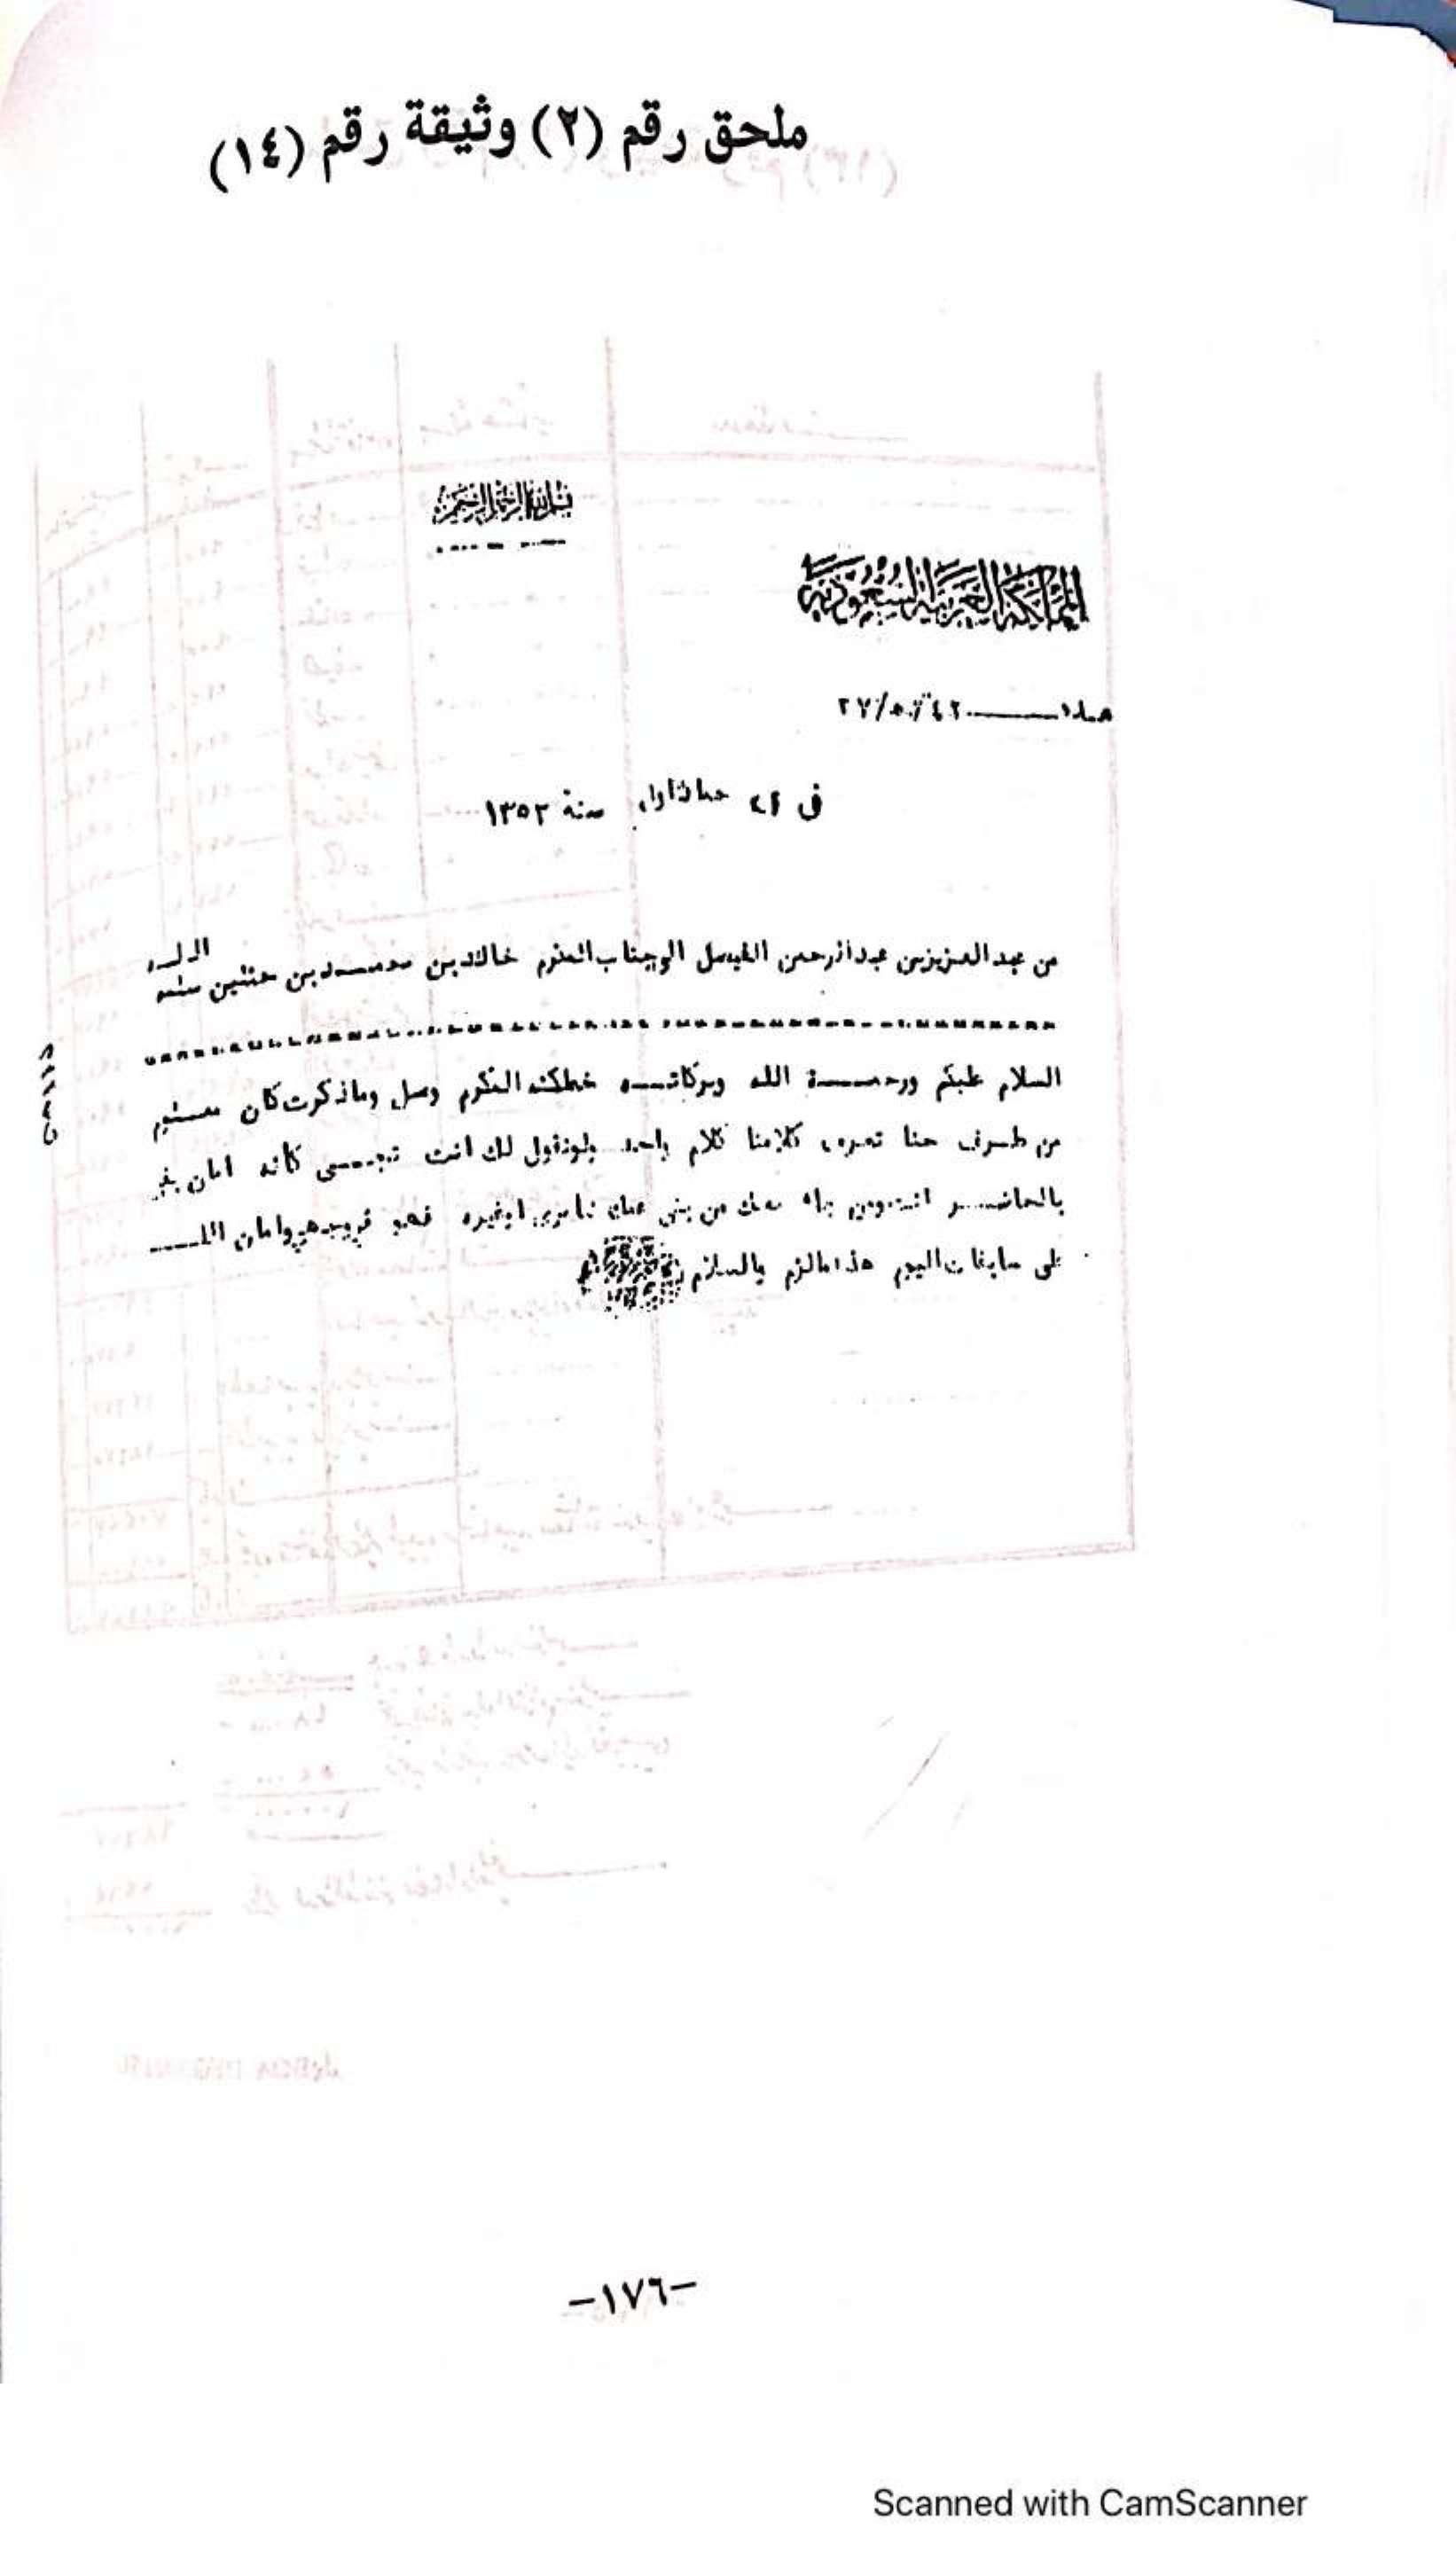 ملحق رقم (٢) وثيقة رقم (١٤)
بسم الله الرحمن الرحيم
المملكة العربية السعودية
عدد ٢٧/٥/٤٢
فى ٢٤ جماد اول سنة ١٣٥٢
من عبد العزيز بن عبد الرحمن الفيصل الى جناب المكرم خالد بن محمد بن حثلين سلمه الله
السلام عليكم ورحمة الله وبركاته خطكم المكرم وصل وماذكرت كان معلوم
من طرف حنا تعرف كلامنا كلام واحد ولونقول لك انت تجى كانه امان
بالحاضر انت ومن جاء معك من بنى عمك اوغيره فهو فى وجهى وامان الله
على مافات اليوم هذا مالزم والسلام
-١٧٦-
Scanned with CamScanner